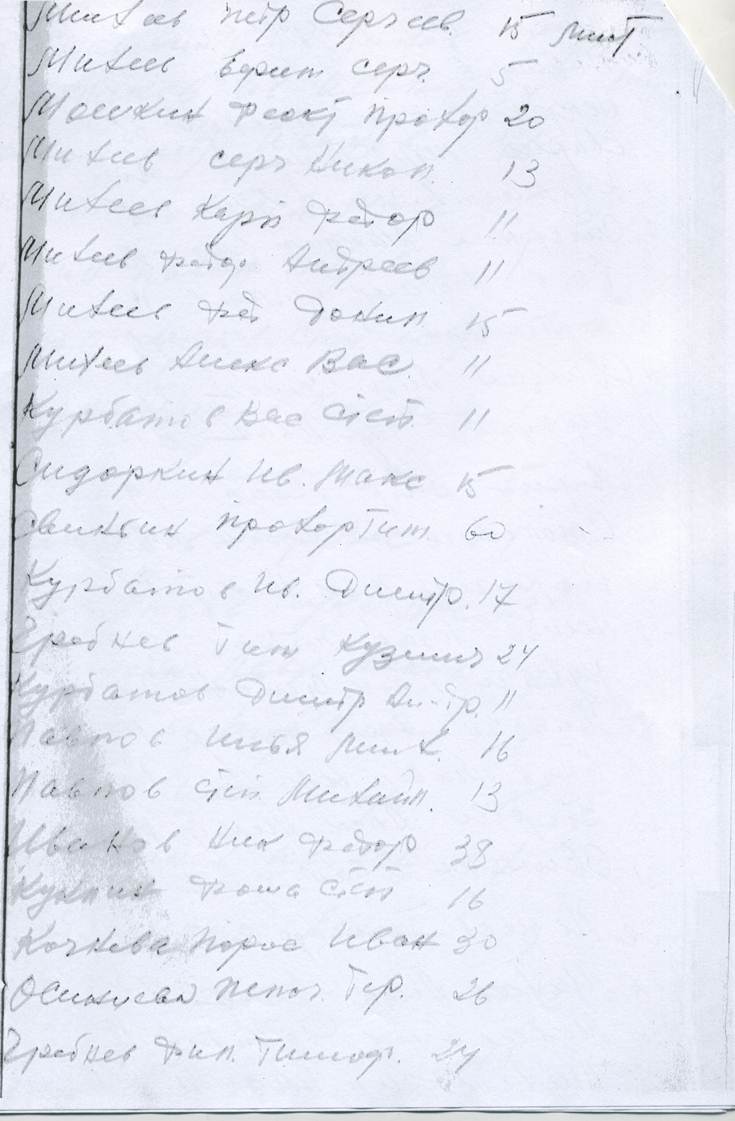 Митяев Петр Сергеев. 15 лист
Митяев серг. 5
Мошкин Феокт Прохор 20
Митяев серг Никол. 13
Митяев Карп Федор 11
Митяев Федор Андреев 11
Митяев Фед 15
Митяев Алекс Вас. 11
Курбатов Вас Степ. 11
Сидоркин Ив. Макс 15
Свинтин Прохор Тит. 60
Курбатов Ив. Дмитр. 17
Гребнев Тит Кузмич 24
Курбатов Дмитр 11
Павлов Илья Мих. 16
Павлов Степ. Михаил. 13
Иванов Ник Федор 38
Фома Степ 16
Кочнева Парас Иван 30
26
Гребнев Фил. Тимоф. 24